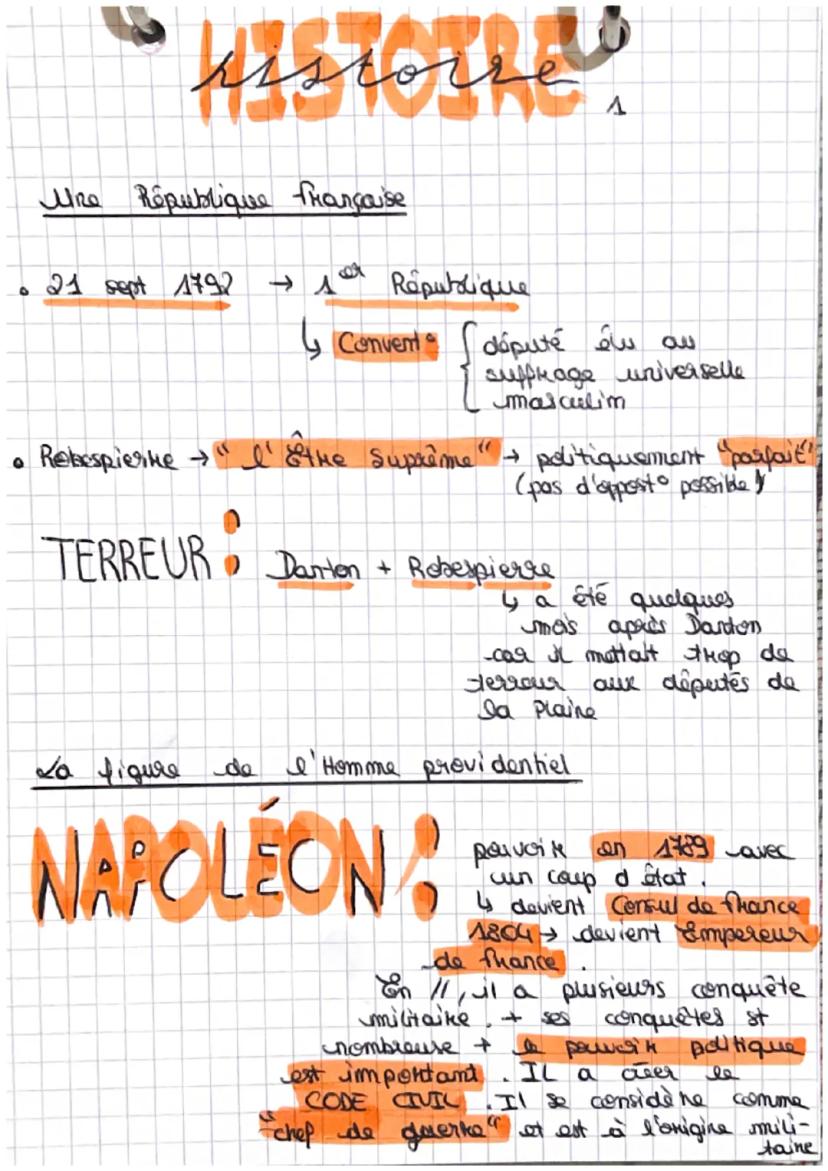 HISTOIRE
histoire
1
Une République française
• 21 sept 1792 → 1er République
↳ Convent° { député élu au
suffrage universelle
masculin
• Robespierre → "l'Être Suprême" → politiquement "parfait"
(pas d'oppost° possible)
TERREUR : Danton + Robespierre
↳ a été quelques
mois après Danton
car il mettait trop de
terreur aux députés de
la Plaine
La figure de l'Homme providentiel
NAPOLÉON : pouvoir en 1789 avec
un coup d état.
↳ devient Consul de france
1804 → devient Empereur
de france.
En //, il a plusieurs conquête
militaire. + ses conquêtes st
nombreuse + le pouvoir politique
est important. IL a créer le
CODE CIVIL. Il se considère comme
"chef de guerre" et est à l'origine mili-
taire